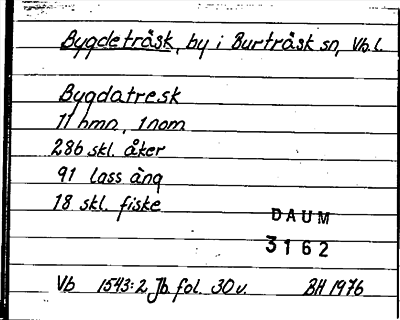 Bygdeträsk, by i Burträsk sn, Vb.l.
Bygdatresk
11 hmn, 1 nom
286 skl. åker
91 lass äng
18 skl. fiske
DAUM
3162
Vb 1543:2 Jb. fol. 30v. BH 1976